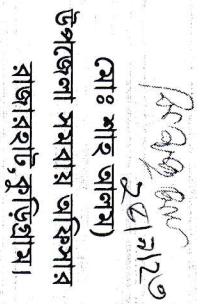 ২৫/৯/২৩
(মোঃ শাহ আলম)
উপজেলা সমবায় অফিসার
রাজারহাট, কুড়িগ্রাম।